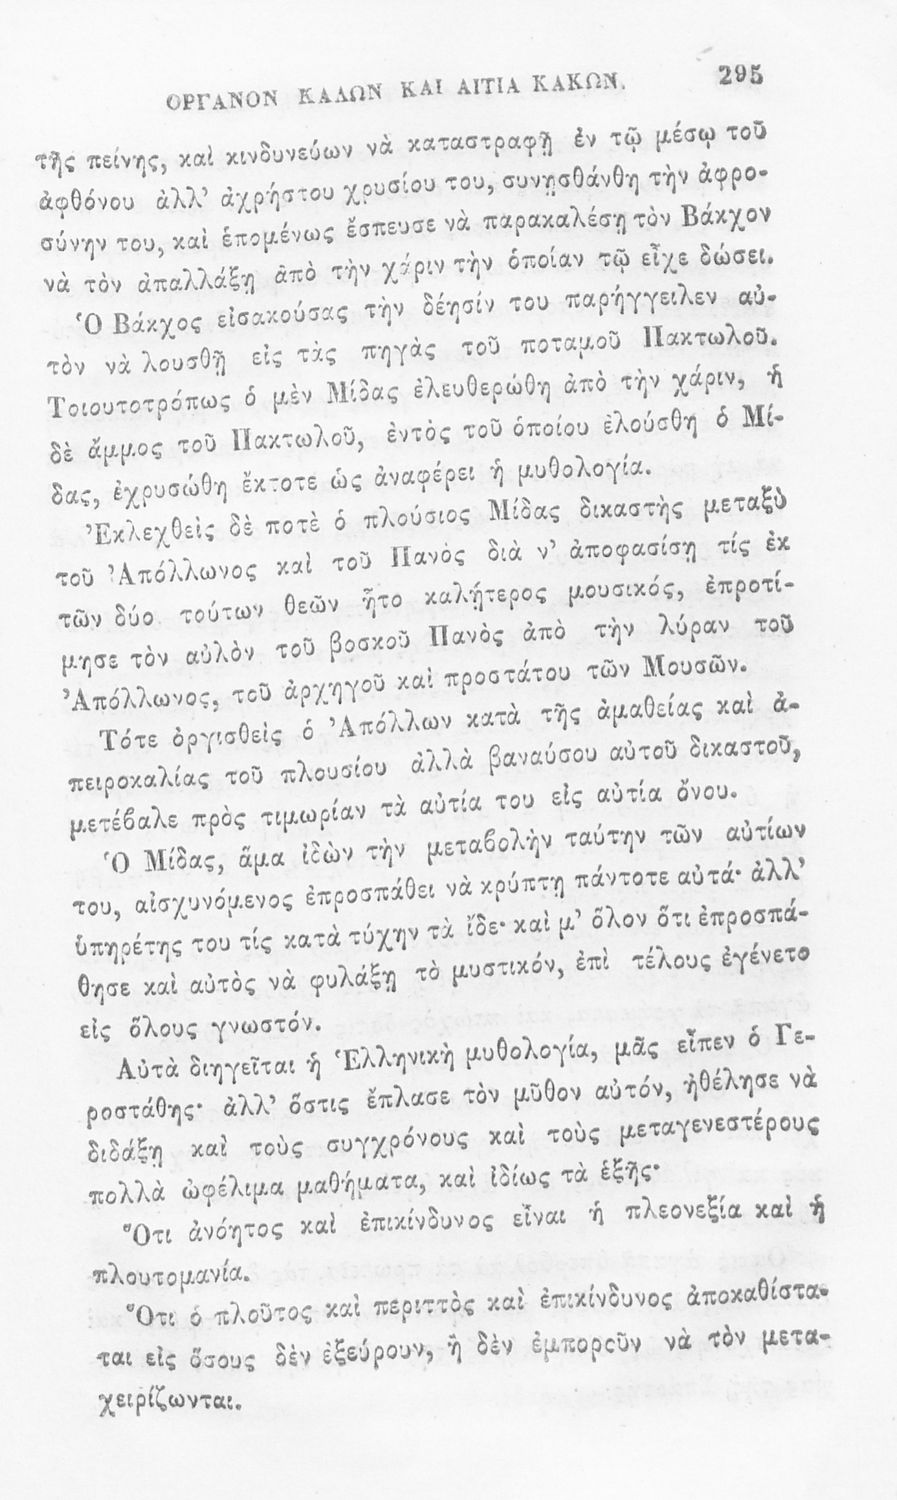 ΟΡΓΑΝΟΝ ΚΑΛΩΝ ΚΑΙ ΑΙΤΙΑ ΚΑΚΩΝ. 295
τῆς πείνης, καὶ κινδυνεύων νὰ καταστραφῇ ἐν τῷ μέσῳ τοῦ
ἀφθόνου ἀλλ’ ἀχρήστου χρυσίου του, συνῃσθάνθη τὴν ἀφρο-
σύνην του, καὶ ἑπομένως ἔσπευσε νὰ παρακαλέσῃ τὸν Βάκχον
νὰ τὸν ἀπαλλάξῃ ἀπὸ τὴν χάριν τὴν ὁποίαν τῷ εἶχε δώσει.
Ὁ Βάκχος εἰσακούσας τὴν δέησίν του παρήγγειλεν αὐ-
τὸν νὰ λουσθῇ εἰς τὰς πηγὰς τοῦ ποταμοῦ Πακτωλοῦ.
Τοιουτοτρόπως ὁ μὲν Μίδας ἐλευθερώθη ἀπὸ τὴν χάριν, ἡ
δὲ ἄμμος τοῦ Πακτωλοῦ, ἐντὸς τοῦ ὁποίου ἐλούσθη ὁ Μί-
δας, ἐχρυσώθη ἔκτοτε ὡς ἀναφέρει ἡ μυθολογία.
Ἐκλεχθεὶς δὲ ποτὲ ὁ πλούσιος Μίδας δικαστὴς μεταξὺ
τοῦ Ἀπόλλωνος καὶ τοῦ Πανὸς διὰ ν’ ἀποφασίσῃ τίς ἐκ
τῶν δύο τούτων θεῶν ἦτο καλήτερος μουσικός, ἐπροτί-
μησε τὸν αὐλὸν τοῦ βοσκοῦ Πανὸς ἀπὸ τὴν λύραν τοῦ
Ἀπόλλωνος, τοῦ ἀρχηγοῦ καὶ προστάτου τῶν Μουσῶν.
Τότε ὀργισθεὶς ὁ Ἀπόλλων κατὰ τῆς ἀμαθείας καὶ ἀ-
πειροκαλίας τοῦ πλουσίου ἀλλὰ βαναύσου αὐτοῦ δικαστοῦ,
μετέβαλε πρὸς τιμωρίαν τὰ αὐτία του εἰς αὐτία ὄνου.
Ὁ Μίδας, ἅμα ἰδὼν τὴν μεταβολὴν ταύτην τῶν αὐτίων
του, αἰσχυνόμενος ἐπροσπάθει νὰ κρύπτῃ πάντοτε αὐτά· ἀλλ’
ὑπηρέτης του τίς κατὰ τύχην τὰ ἴδε· καὶ μ’ ὅλον ὅτι ἐπροσπά-
θησε καὶ αὐτὸς νὰ φυλάξῃ τὸ μυστικόν, ἐπὶ τέλους ἐγένετο
εἰς ὅλους γνωστόν.
Αὐτὰ διηγεῖται ἡ Ἑλληνικὴ μυθολογία, μᾶς εἶπεν ὁ Γε-
ροστάθης· ἀλλ’ ὅστις ἔπλασε τὸν μῦθον αὐτόν, ἠθέλησε νὰ
διδάξῃ καὶ τοὺς συγχρόνους καὶ τοὺς μεταγενεστέρους
πολλὰ ὠφέλιμα μαθήματα, καὶ ἰδίως τὰ ἑξῆς·
Ὅτι ἀνόητος καὶ ἐπικίνδυνος εἶναι ἡ πλεονεξία καὶ ἡ
πλουτομανία.
Ὅτι ὁ πλοῦτος καὶ περιττὸς καὶ ἐπικίνδυνος ἀποκαθίστα-
ται εἰς ὅσους δὲν ἐξεύρουν, ἢ δὲν ἐμποροῦν νὰ τὸν μετα-
χειρίζωνται.